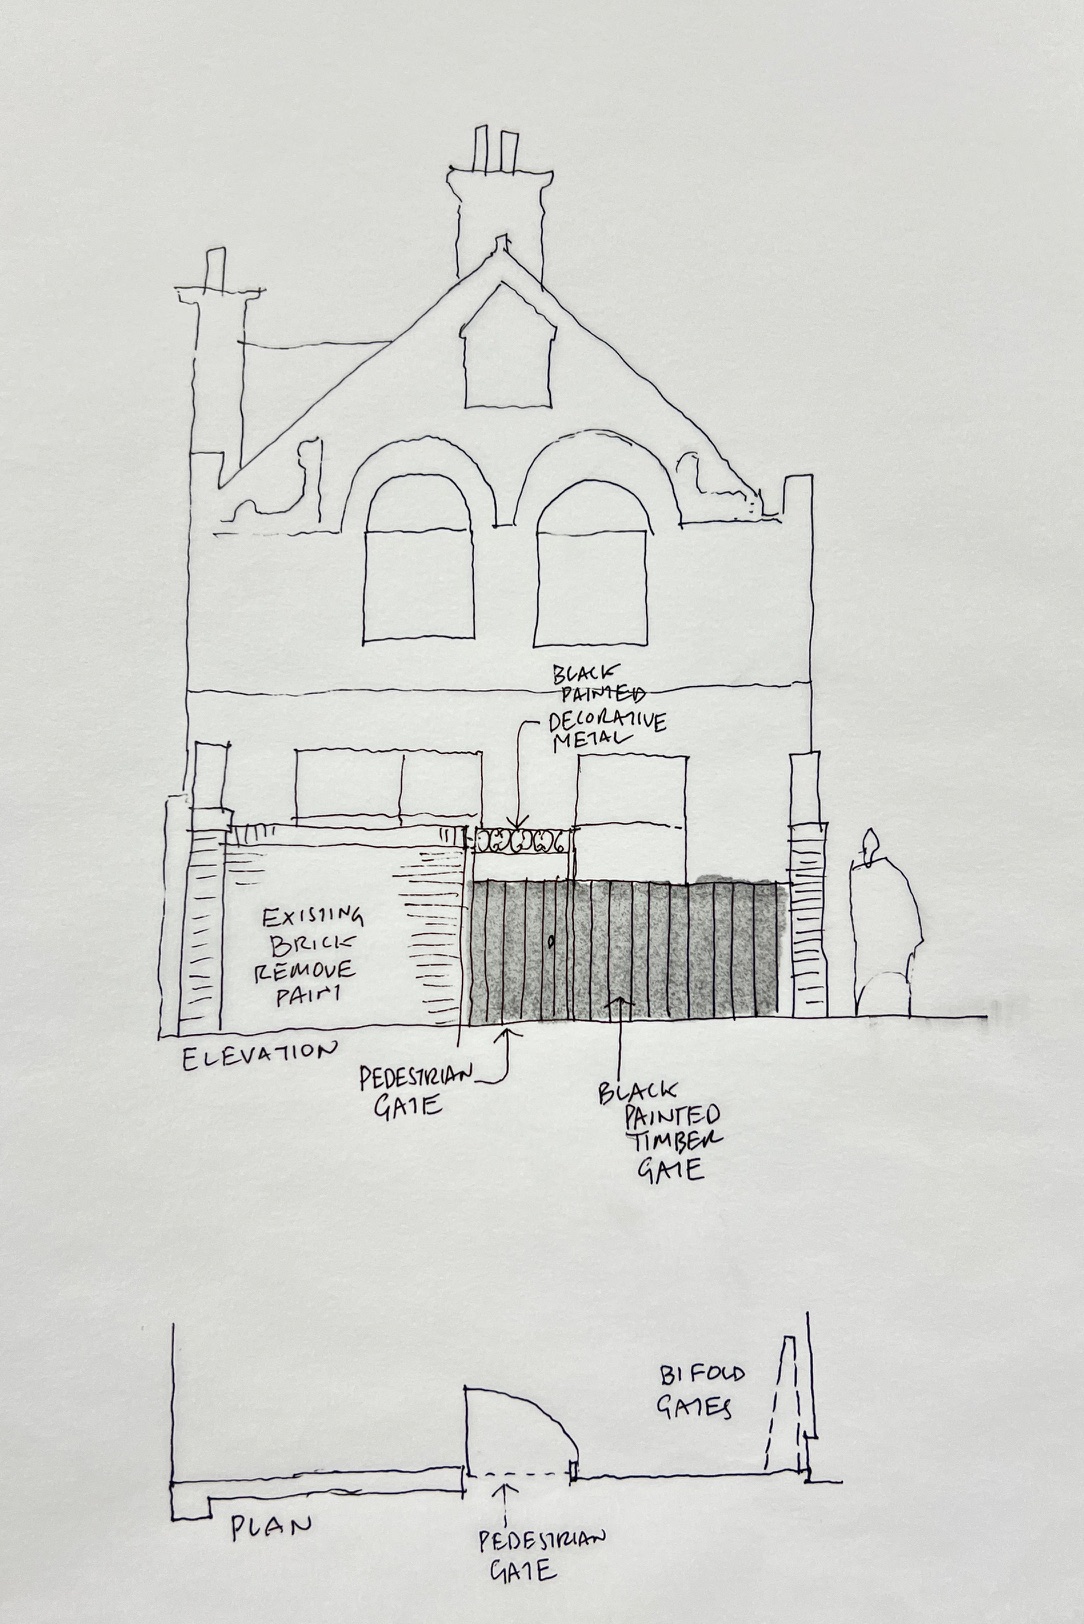 BLACK
PAINTED
DECORATIVE
METAL
EXISTING
BRICK
REMOVE
PAINT
ELEVATION
PEDESTRIAN
GATE
BLACK
PAINTED
TIMBER
GATE
BIFOLD
GATES
PLAN
PEDESTRIAN
GATE